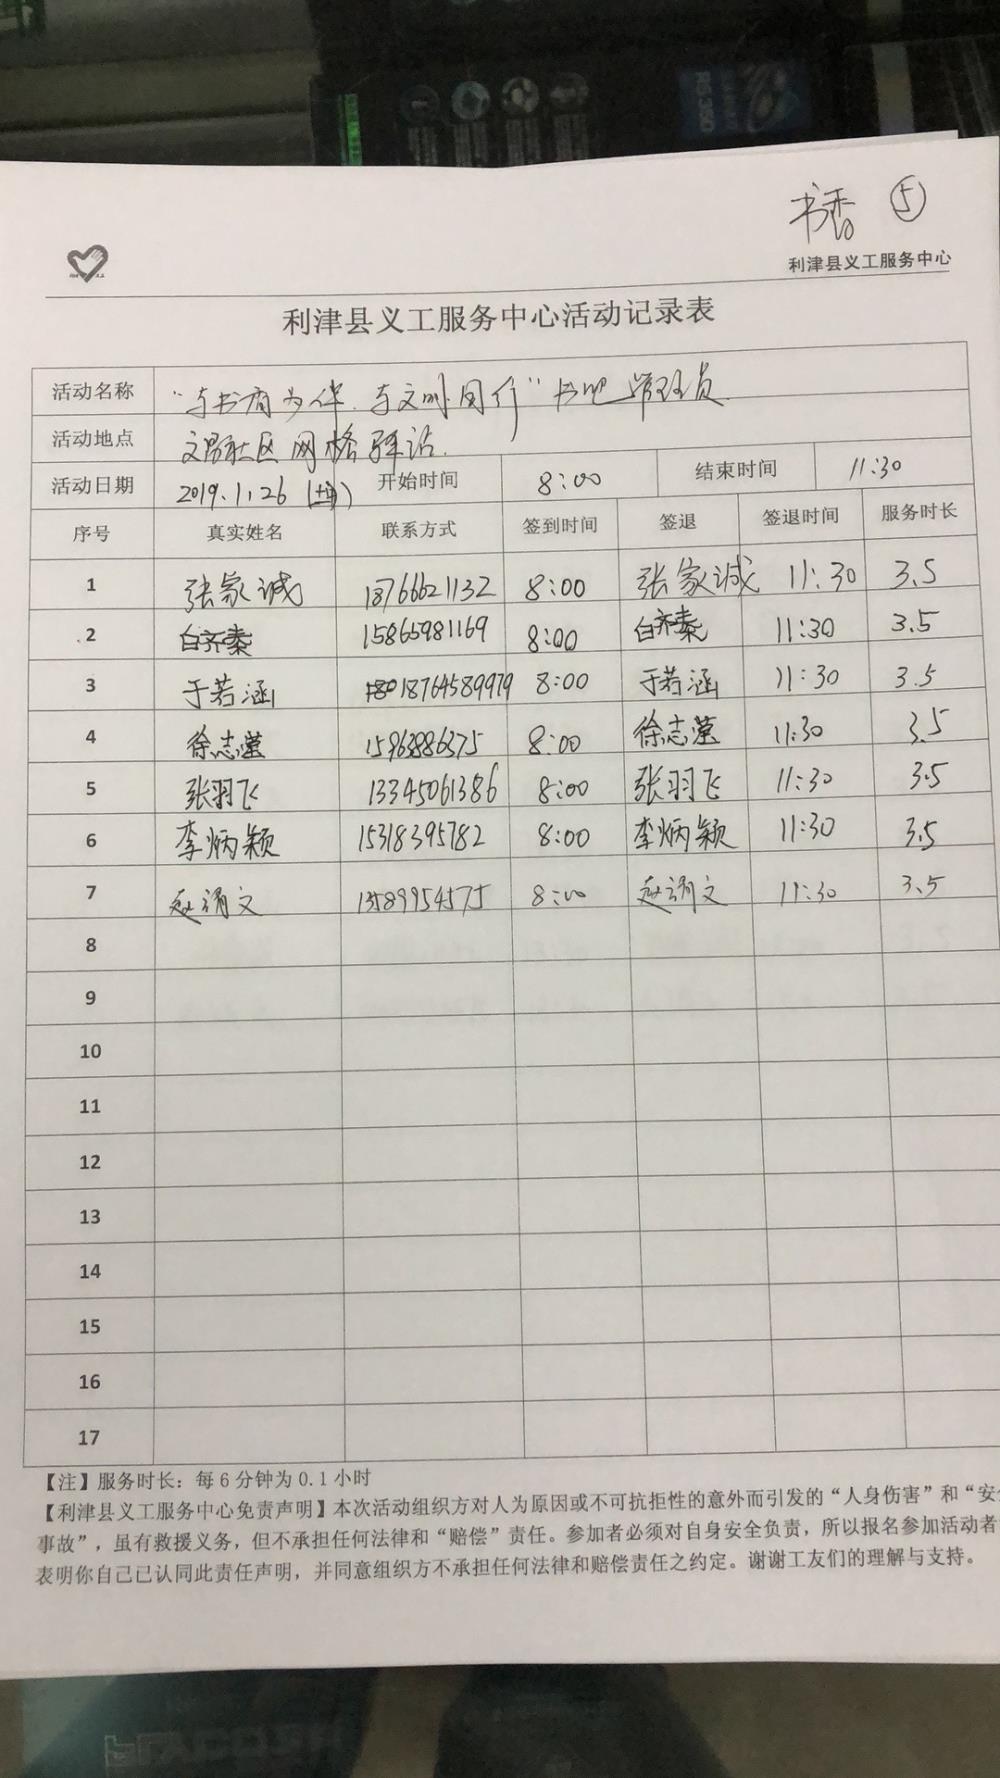 书香 ⑤
利津县义工服务中心
利津县义工服务中心活动记录表
活动名称 “与书为伴.与文明同行”书吧管理员
活动地点 社区网格驿站.
活动日期 2019.1.26 开始时间 8:00 结束时间 11:30
序号 真实姓名 联系方式 签到时间 签退 签退时间 服务时长
1 张家诚 18766621132 8:00 张家诚 11:30 3.5
2 白齐秦 15865981169 8:00 白齐秦 11:30 3.5
3 于若涵 18764589979 8:00 于若涵 11:30 3.5
4 徐志滢 15963886375 8:00 徐志滢 11:30 3.5
5 张羽飞 13345061386 8:00 张羽飞 11:30 3.5
6 李炳颖 15318395782 8:00 李炳颖 11:30 3.5
7 赵清文 13589954575 8:00 赵清文 11:30 3.5
8
9
10
11
12
13
14
15
16
17
【注】服务时长：每6分钟为0.1小时
【利津县义工服务中心免责声明】本次活动组织方对人为原因或不可抗拒性的意外而引发的“人身伤害”和“安
事故”，虽有救援义务，但不承担任何法律和“赔偿”责任。参加者必须对自身安全负责，所以报名参加活动者
表明你自己已认同此责任声明，并同意组织方不承担任何法律和赔偿责任之约定。谢谢工友们的理解与支持。